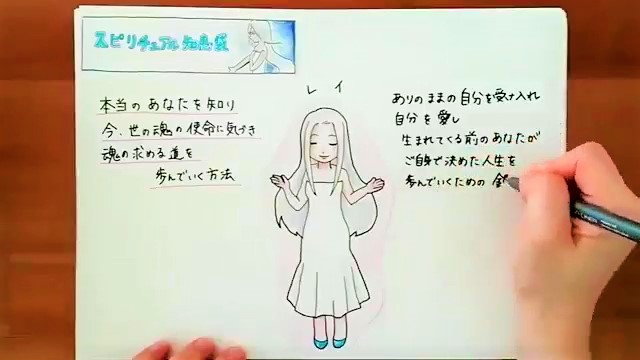 スピリチュアル知恵袋
レイ
本当のあなたを知り
今世の魂の使命に気づき
魂の求める道を
歩んでいく方法
ありのままの自分を受け入れ
自分を愛し
生まれてくる前のあなたが
ご自身で決めた人生を
歩んでいくための